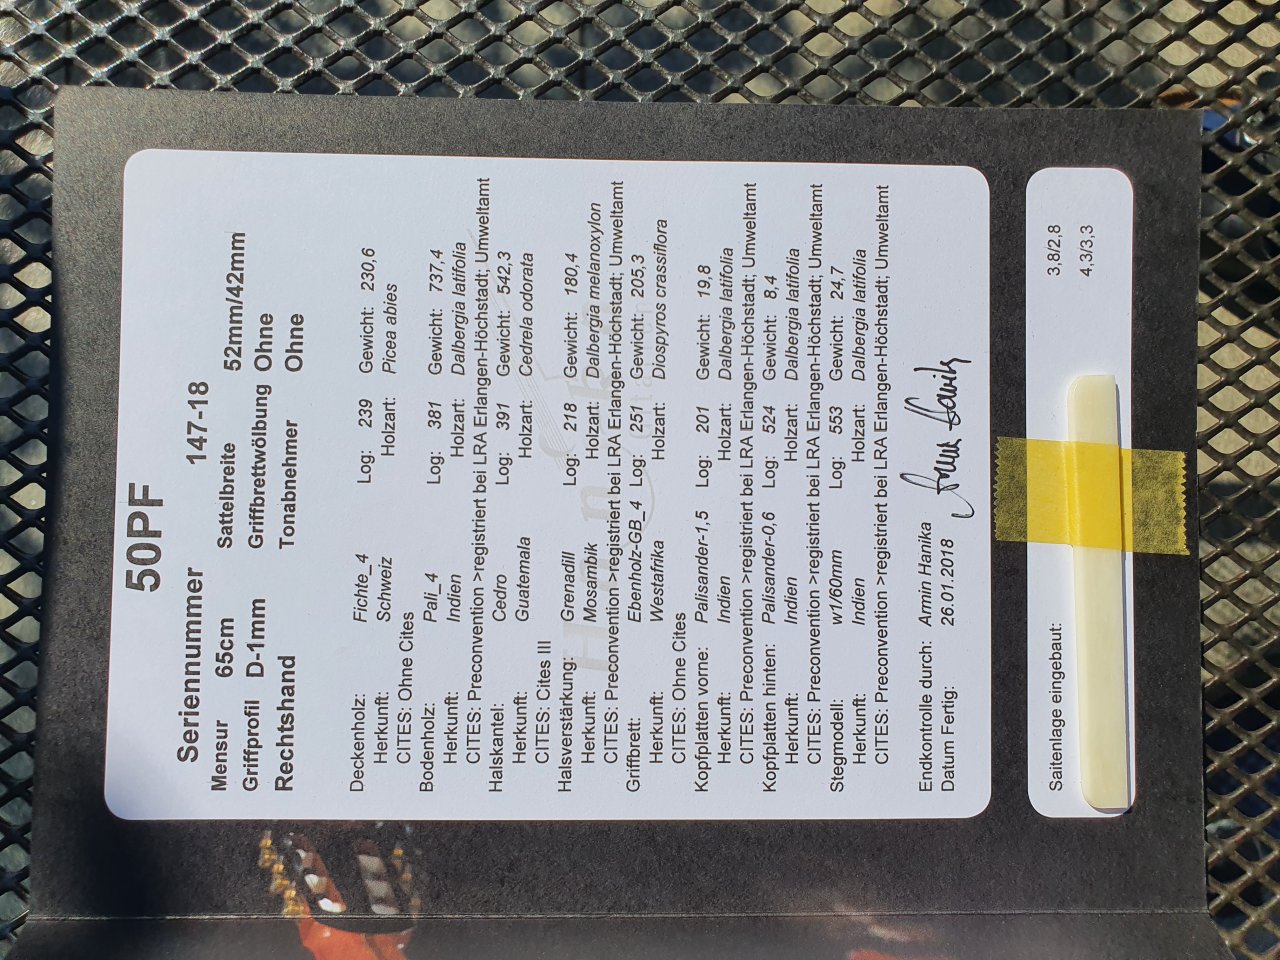 50PF
Seriennummer 147-18
Mensur 65cm Sattelbreite 52mm/42mm
Griffprofil D-1mm Griffbrettwölbung Ohne
Rechtshand Tonabnehmer Ohne
Deckenholz: Fichte_4 Log: 239 Gewicht: 230,6
Herkunft: Schweiz Holzart: Picea abies
CITES: Ohne Cites
Bodenholz: Pali_4 Log: 381 Gewicht: 737,4
Herkunft: Indien Holzart: Dalbergia latifolia
CITES: Preconvention >registriert bei LRA Erlangen-Höchstadt; Umweltamt
Halskantel: Cedro Log: 391 Gewicht: 542,3
Herkunft: Guatemala Holzart: Cedrela odorata
CITES: Cites III
Halsverstärkung: Grenadill Log: 218 Gewicht: 180,4
Herkunft: Mosambik Holzart: Dalbergia melanoxylon
CITES: Preconvention >registriert bei LRA Erlangen-Höchstadt; Umweltamt
Griffbrett: Ebenholz-GB_4 Log: 251 Gewicht: 205,3
Herkunft: Westafrika Holzart: Diospyros crassiflora
CITES: Ohne Cites
Kopfplatten vorne: Palisander-1,5 Log: 201 Gewicht: 19,8
Herkunft: Indien Holzart: Dalbergia latifolia
CITES: Preconvention >registriert bei LRA Erlangen-Höchstadt; Umweltamt
Kopfplatten hinten: Palisander-0,6 Log: 524 Gewicht: 8,4
Herkunft: Indien Holzart: Dalbergia latifolia
CITES: Preconvention >registriert bei LRA Erlangen-Höchstadt; Umweltamt
Stegmodell: w1/60mm Log: 553 Gewicht: 24,7
Herkunft: Indien Holzart: Dalbergia latifolia
CITES: Preconvention >registriert bei LRA Erlangen-Höchstadt; Umweltamt
Endkontrolle durch: Armin Hanika
Datum Fertig: 26.01.2018
Armin Hanika
Saitenlage eingebaut: 3,8/2,8
4,3/3,3